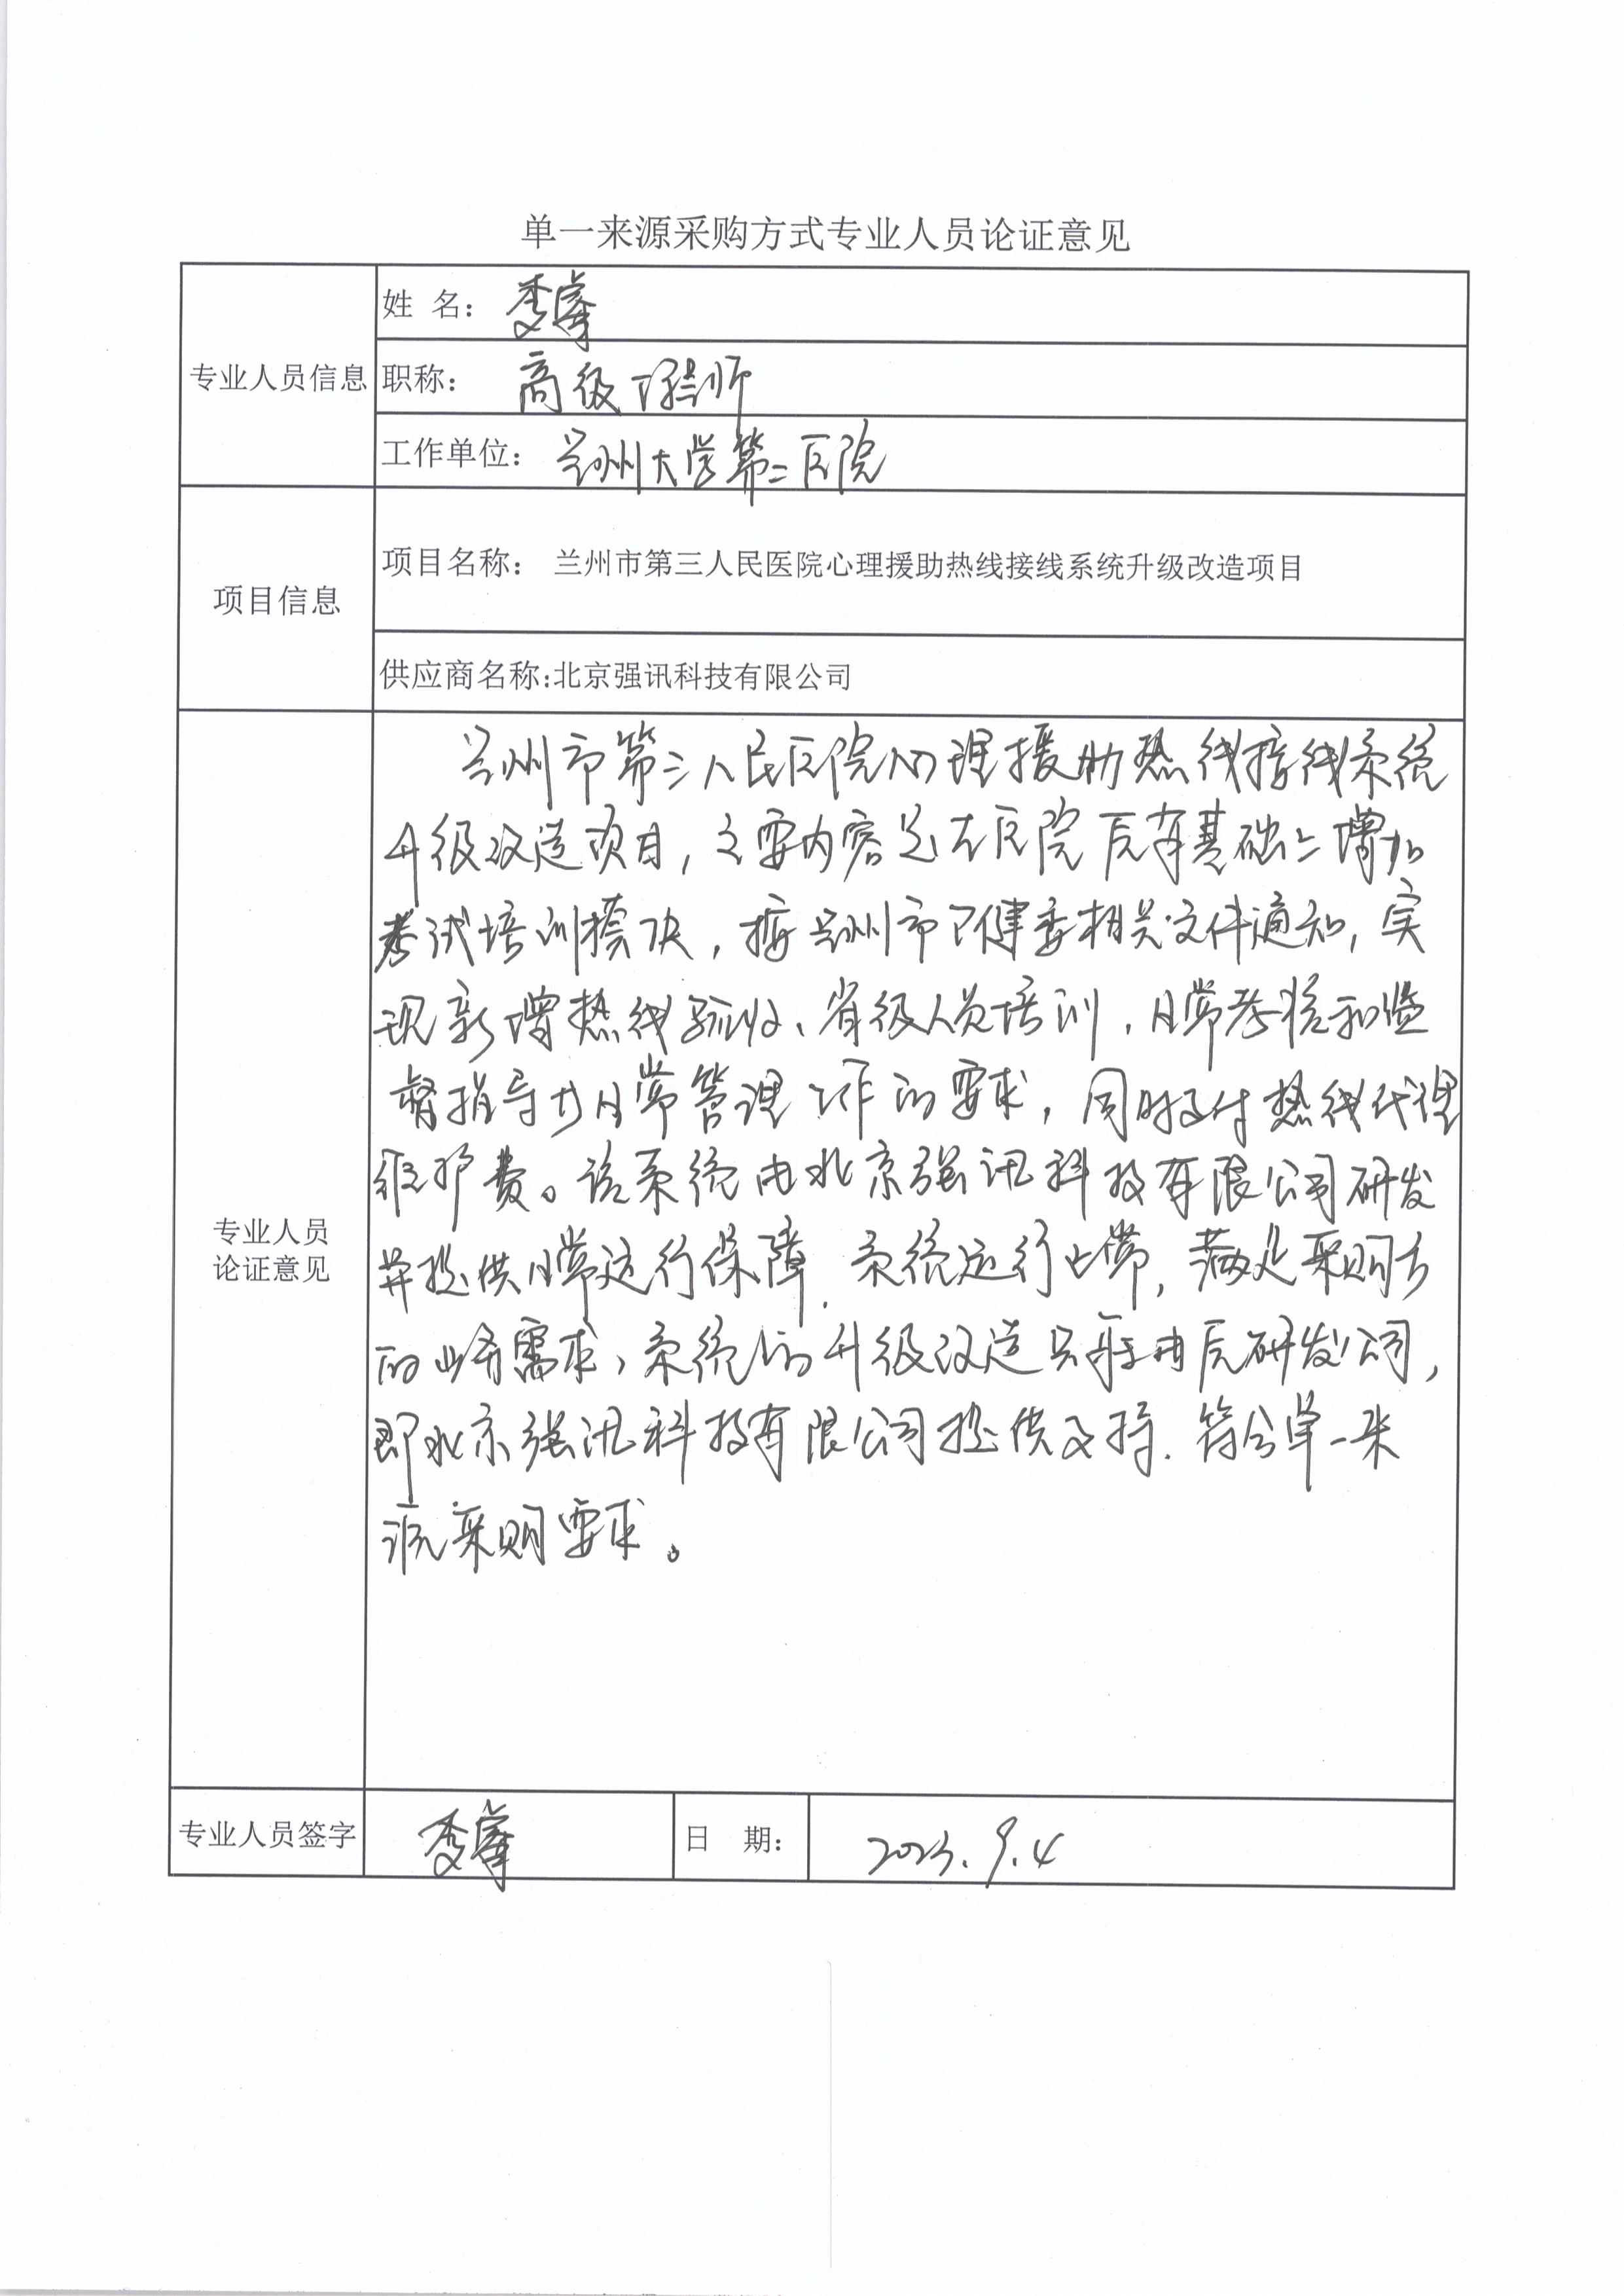 单一来源采购方式专业人员论证意见
专业人员信息
姓 名：李
职称：高级工程师
工作单位：兰州大学第二医院
项目信息
项目名称： 兰州市第三人民医院心理援助热线接线系统升级改造项目
供应商名称:北京强讯科技有限公司
专业人员
论证意见
兰州市第三人民医院心理援助热线接线系统
升级改造项目，主要内容是在医院原有基础上增加
考试培训模块，按兰州市卫健委相关文件通知，实
现新增热线验收、省级人员培训，日常考核和监
督指导等日常管理工作的要求，同时支付热线代理
维护费。该系统由北京强讯科技有限公司研发
并提供日常运行保障，系统运行正常，满足采购方
的业务需求，系统的升级改造只能由原研发公司，
即北京强讯科技有限公司提供支持，符合单一来
源采购要求。
专业人员签字
李
日 期：
2023.9.4